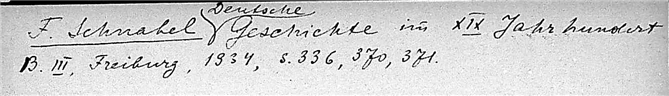 F. Schnabel Deutsche Geschichte im XIX Jahrhundert
B. III, Freiburg, 1934, S. 336, 370, 371.